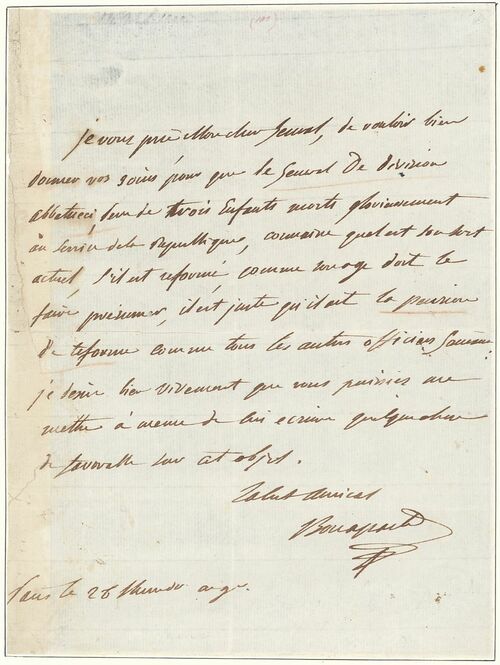 je vous prie Mon cher General, de vouloir bien
donner vos soins pour que le General De Division
abbatucci, de trois Enfants morts glorieusement
au Service de la Republique, connaisse quel est son sort
actuel, s'il est reformé, comme son age doit le
faire présumer, il est juste qu'il ait la pension
de reforme comme tous les autres officiers
je desire bien vivement que vous puissiez me
mettre à meme de lui ecrire quelque chose
de favorable sur cet objet.
Salut amical
Bonaparte
Paris le 28